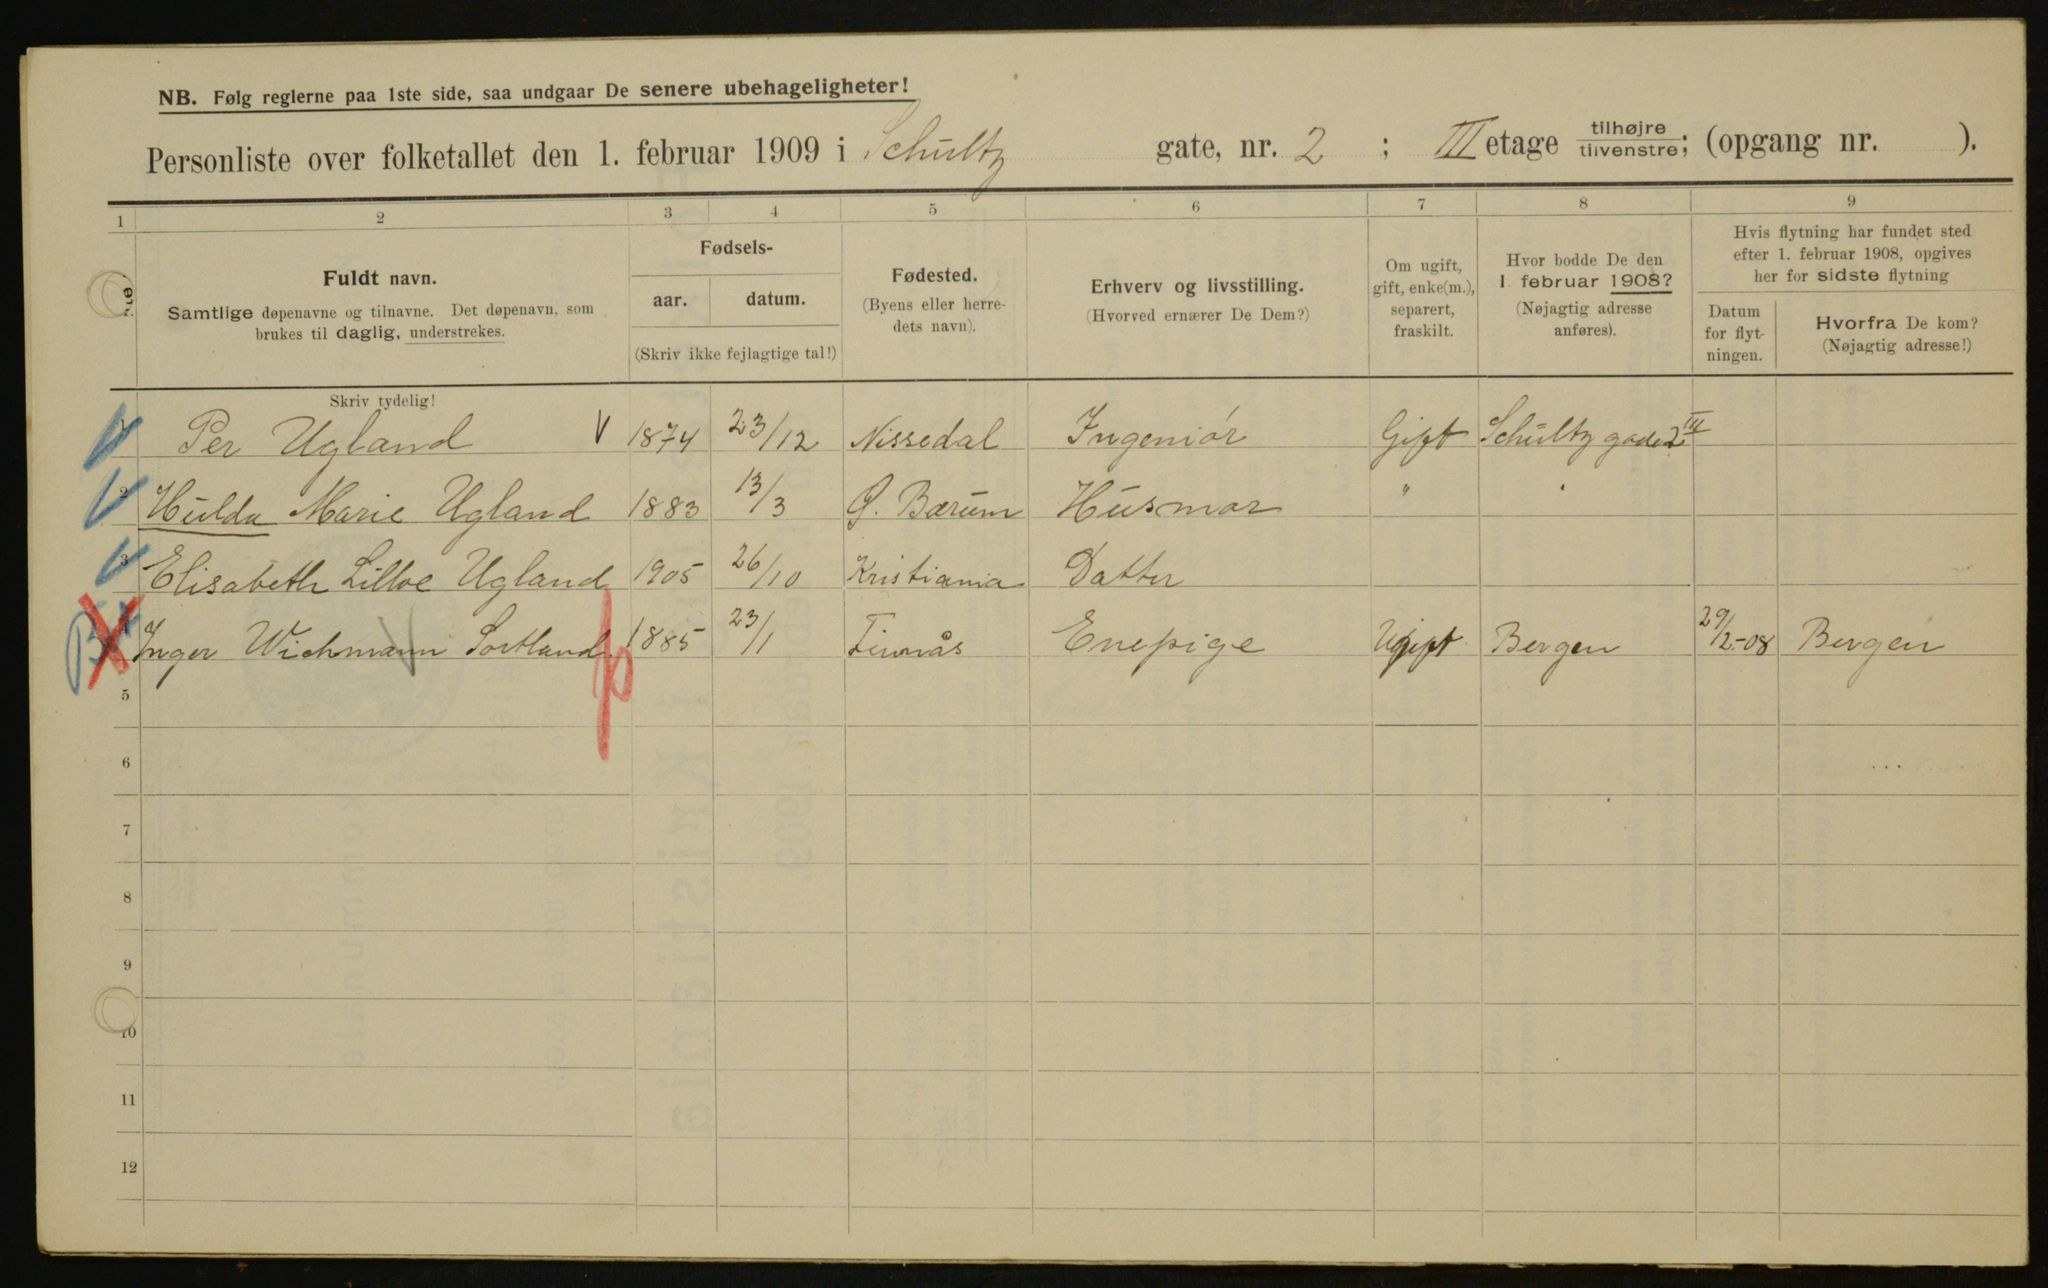 NB. Følg reglerne paa 1ste side, saa undgaar De senere ubehageligheter!
Personliste over folketallet den 1. februar 1909 i Schultz gate, nr. 2 ; III etage tilhøjre tilvenstre; (opgang nr. ).
1 2 3 4 5 6 7 8 9
Fuldt navn.
Samtlige døpenavne og tilnavne. Det døpenavn, som
brukes til daglig, understrekes.
Skriv tydelig!
Fødsels-
aar. datum.
(Skriv ikke fejlagtige tal!)
Fødested.
(Byens eller herre-
dets navn).
Erhverv og livsstilling.
(Hvorved ernærer De Dem?)
Om ugift,
gift, enke(m.),
separert,
fraskilt.
Hvor bodde De den
1. februar 1908?
(Nøjagtig adresse
anføres).
Hvis flytning har fundet sted
efter 1. februar 1908, opgives
her for sidste flytning
Datum
for flyt-
ningen.
Hvorfra De kom?
(Nøjagtig adresse!)
1 Per Ugland V 1874 23/12 Nissedal Ingeniør Gift Schultz gade 2 III
2 Hulda Marie Ugland 1883 13/3 Ø. Bærum Husmor " "
3 Elisabeth Lilloe Ugland 1905 26/10 Kristiania Datter
4 Inger Wichmann Sortland. 1885 23/1 Finnås Enepige Ugift Bergen 29/2-08 Bergen
5
6
7
8
9
10
11
12